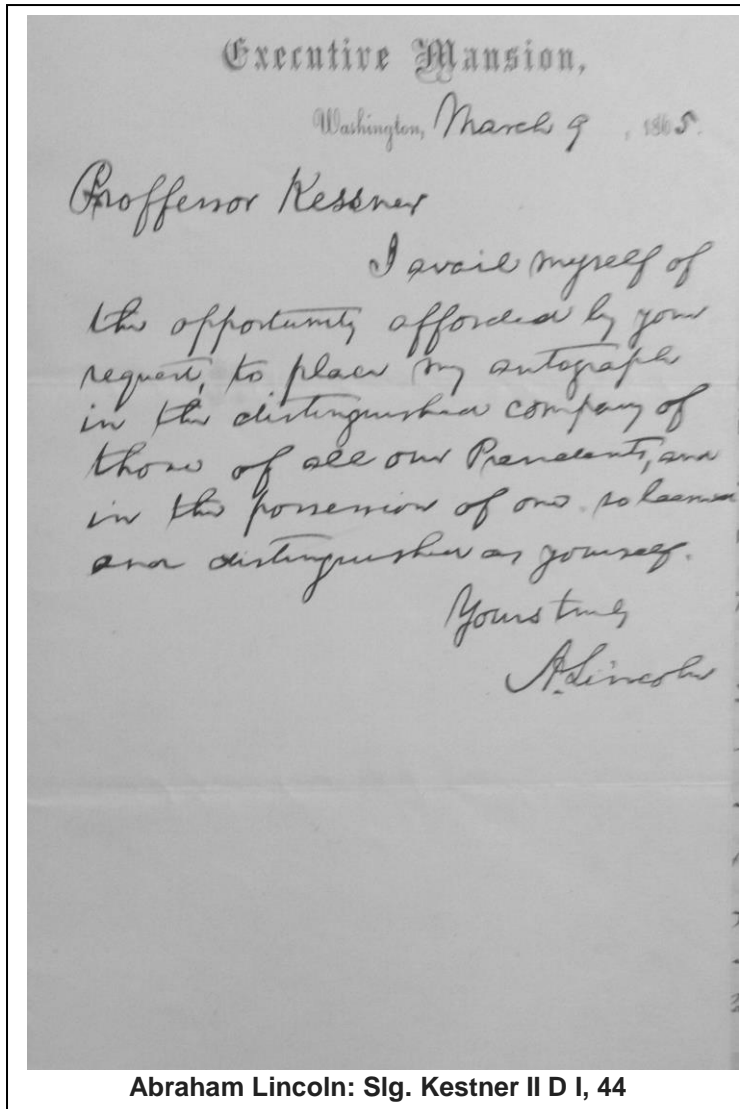 Executive Mansion,
Washington, March 9, 1865.
Proffessor Kessner
I avail myself of
the opportunity afforded by your
request, to place my autograph
in the distinguished company of
those of all our Presidents, and
in the possession of one so learned
and distinguished as yourself.
Yours truly
A. Lincoln
Abraham Lincoln: Slg. Kestner II D I, 44